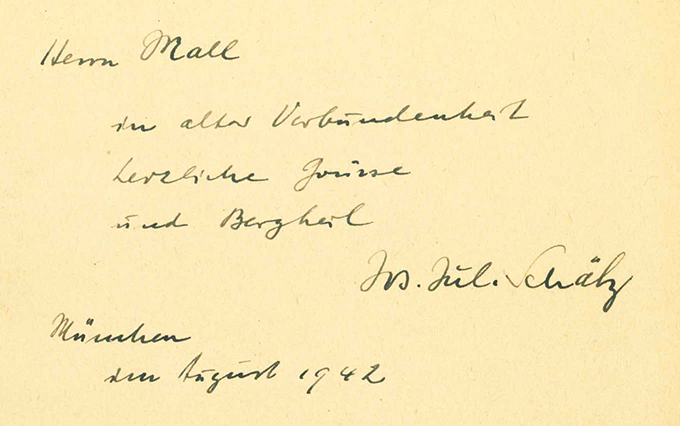 Herrn Mall
in alter Verbundenheit
herzliche Grüsse
und Bergheil
Jos. Jul. Schätz
München
im August 1942